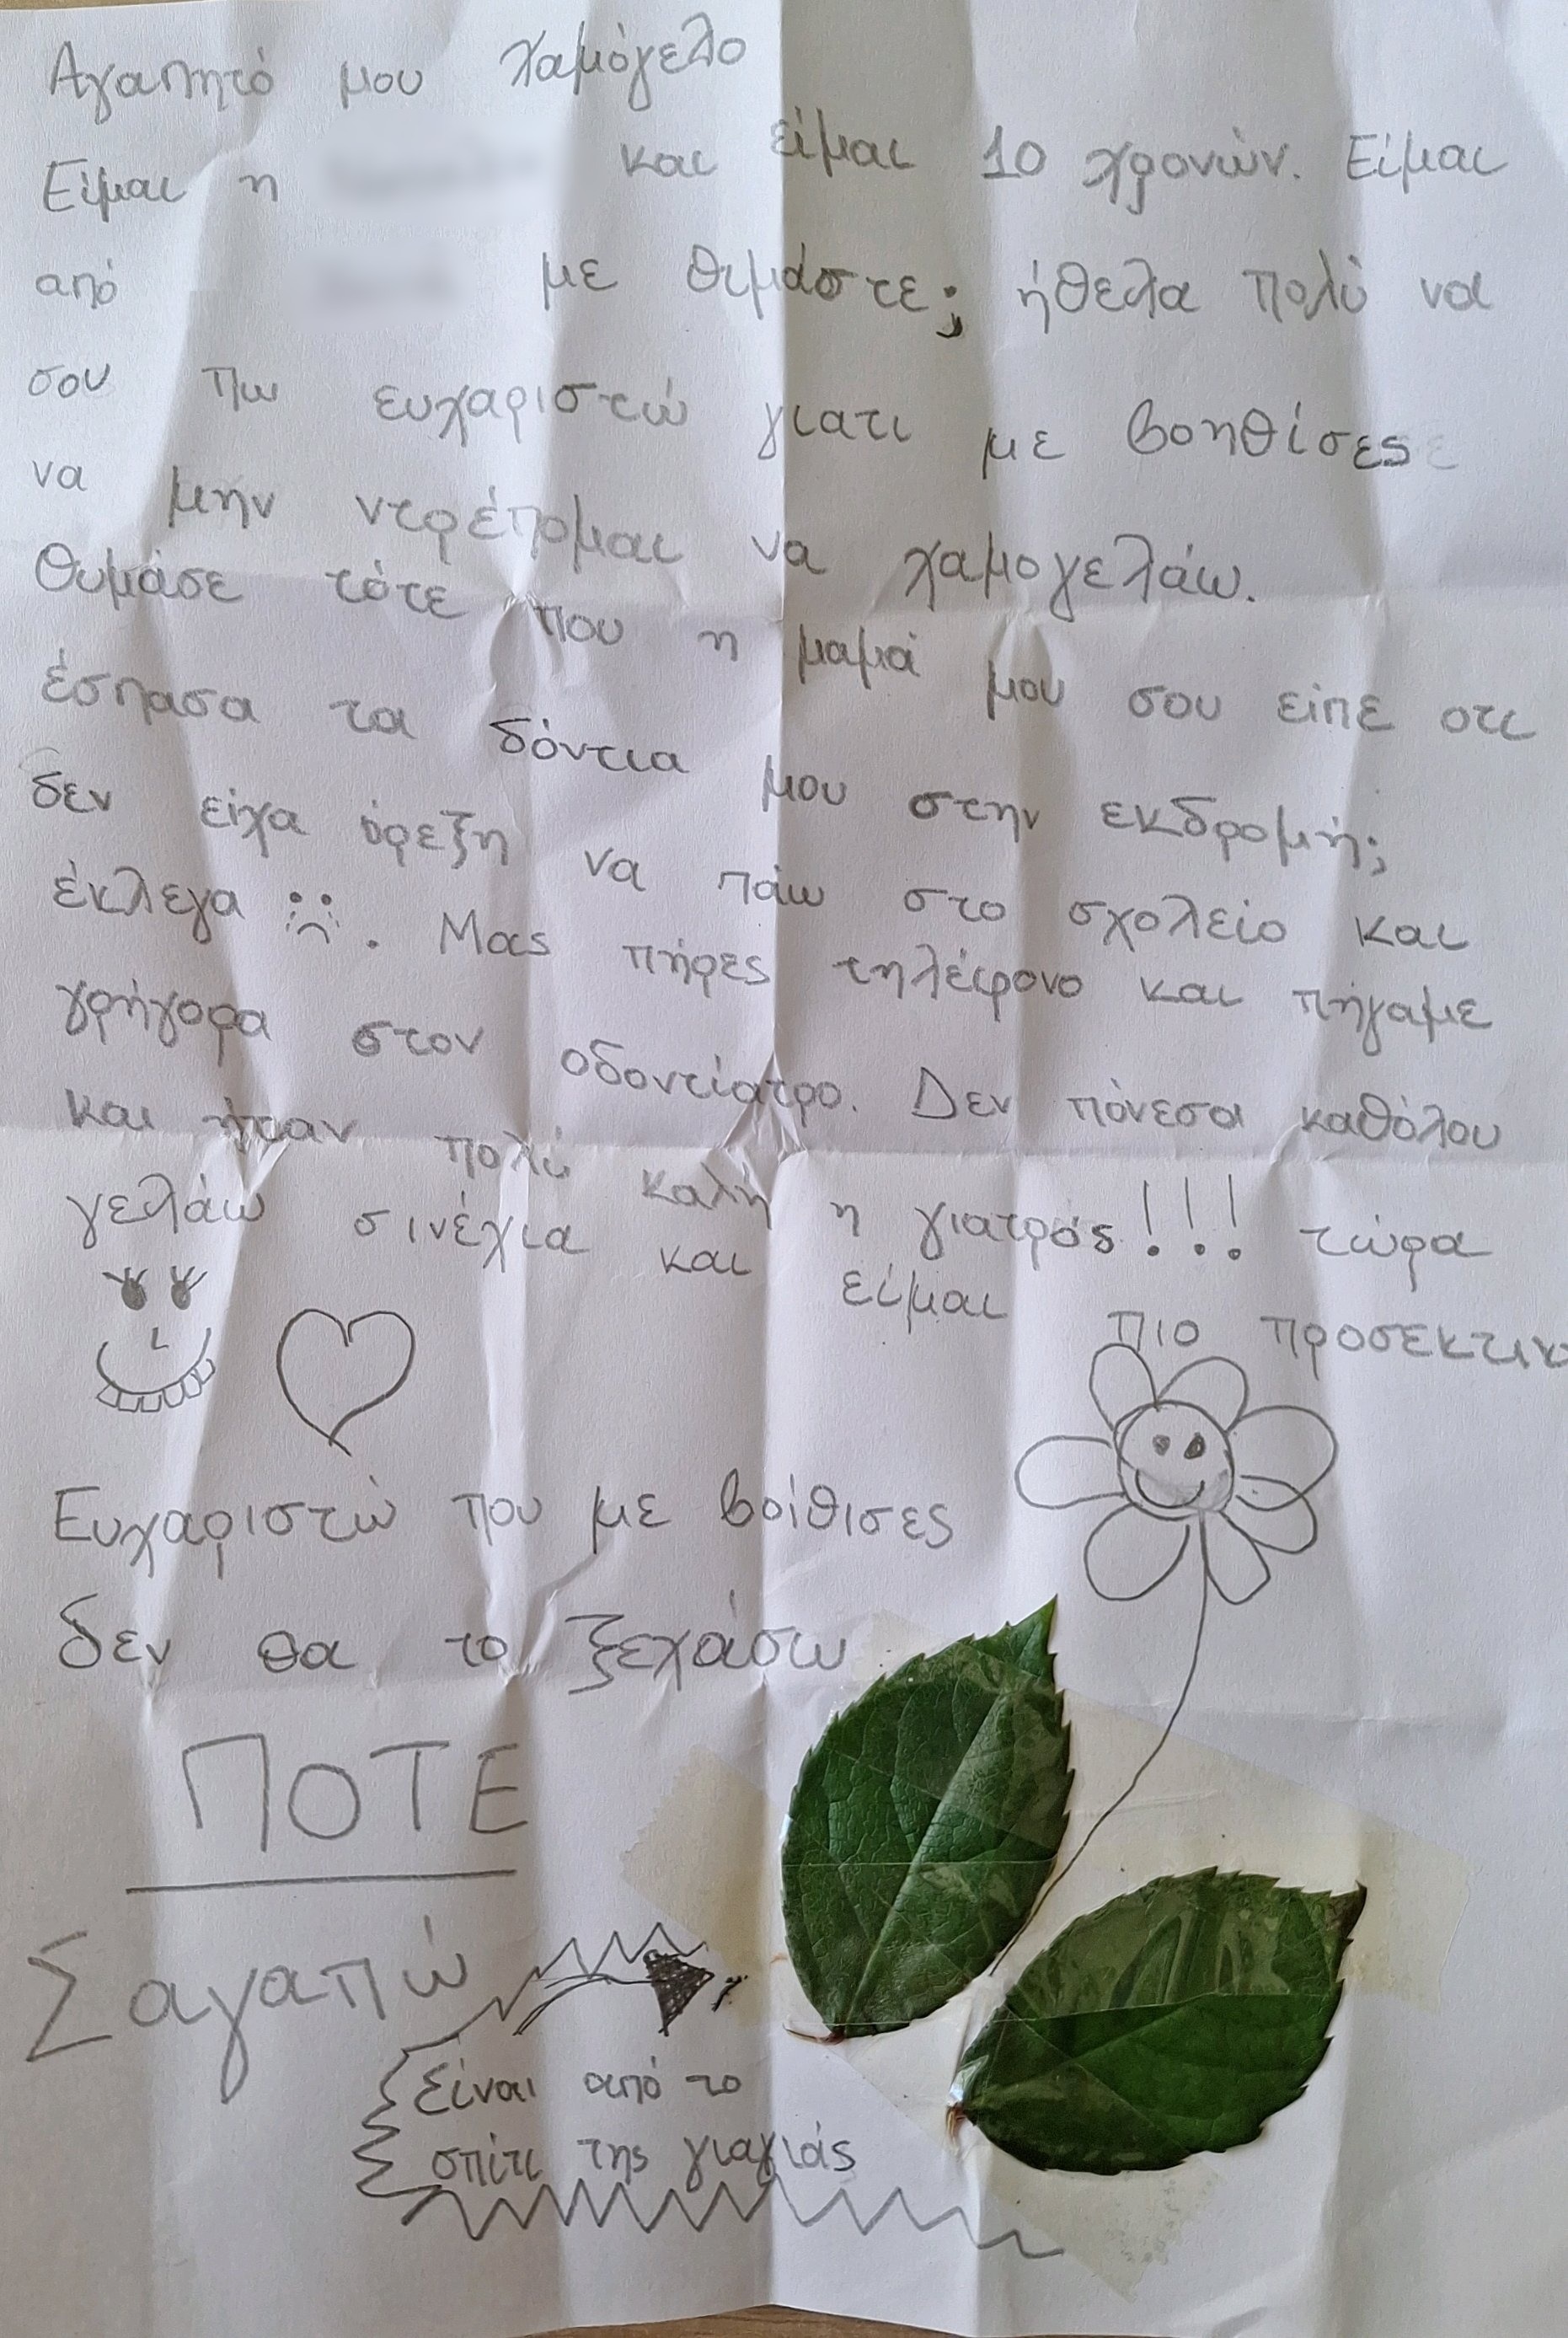 Αγαπητό μου Χαμόγελο
Είμαι η και είμαι 10 χρονών. Είμαι
από με θιμάστε; ήθελα πολύ να
σου πω ευχαριστώ γιατι με βοηθίσες
να μην ντρέπομαι να χαμογελάω.
Θυμάσε τότε που η μαμά μου σου είπε οτι
έσπασα τα δόντια μου στην εκδρομή;
δεν είχα όρεξη να πάω στο σχολείο και
έκλεγα :(. Μας πήρες τηλέφονο και πήγαμε
γρήγορα στον οδοντίατρο. Δεν πόνεσα καθόλου
και ήταν πολύ καλή η γιατρός!!! τώρα
γελάω σινέχια και είμαι πιο προσεκτικ
Ευχαριστώ που με βοίθισες
δεν θα το ξεχάσω
ΠΟΤΕ
Σαγαπώ
είναι από το
σπίτι της γιαγιάς